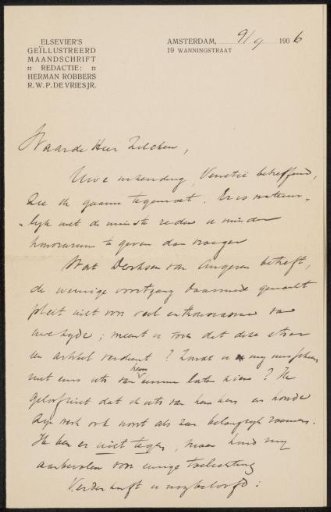 ELSEVIER'S
GEÏLLUSTREERD
MAANDSCHRIFT
REDACTIE:
HERMAN ROBBERS
R. W. P. DE VRIES JR.
AMSTERDAM, 9/9 1906
19 WANNINGSTRAAT
Waarde Heer Zilcken,
Uwe inzending, Venetië betreffend,
zie ik gaarne tegemoet. Er is natuur-
lijk niet de minste reden u minder
honorarium te geven dan vroeger
Wat Derkzen van Angeren betreft,
de weinige voortgang daarmede gemaakt
pleit niet voor veel enthousiasme van
uwe zijde; meent u voor dat deze etser
een artikel verdient? Zoude u mij misschien
niet eens iets van hem kunnen laten zien? Ik
geloof niet dat ik iets van hem ken en zonder
zijn werk ook nooit als zoo belangrijk noemen.
Ik ben er niet tegen, maar houd mij
aanbevolen voor eenige toelichting
Verder heeft u mij beloofd: